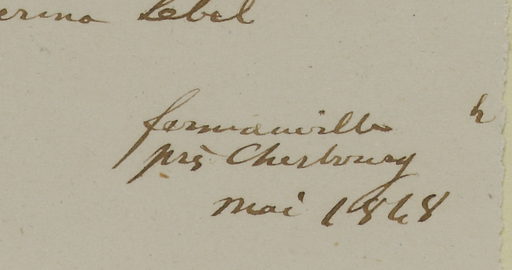 erina Lebel
fermanville
près Cherbourg
mai 1868